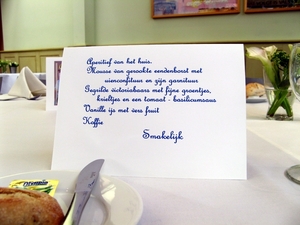 Aperitief van het huis.
Mousse van gerookte eendenborst met
uienconfituur en zijn garnituur
Gegrilde victoriabaars met fijne groentjes,
krieltjes en een tomaat - basilicumsaus
Vanille ijs met vers fruit
Koffie
Smakelijk